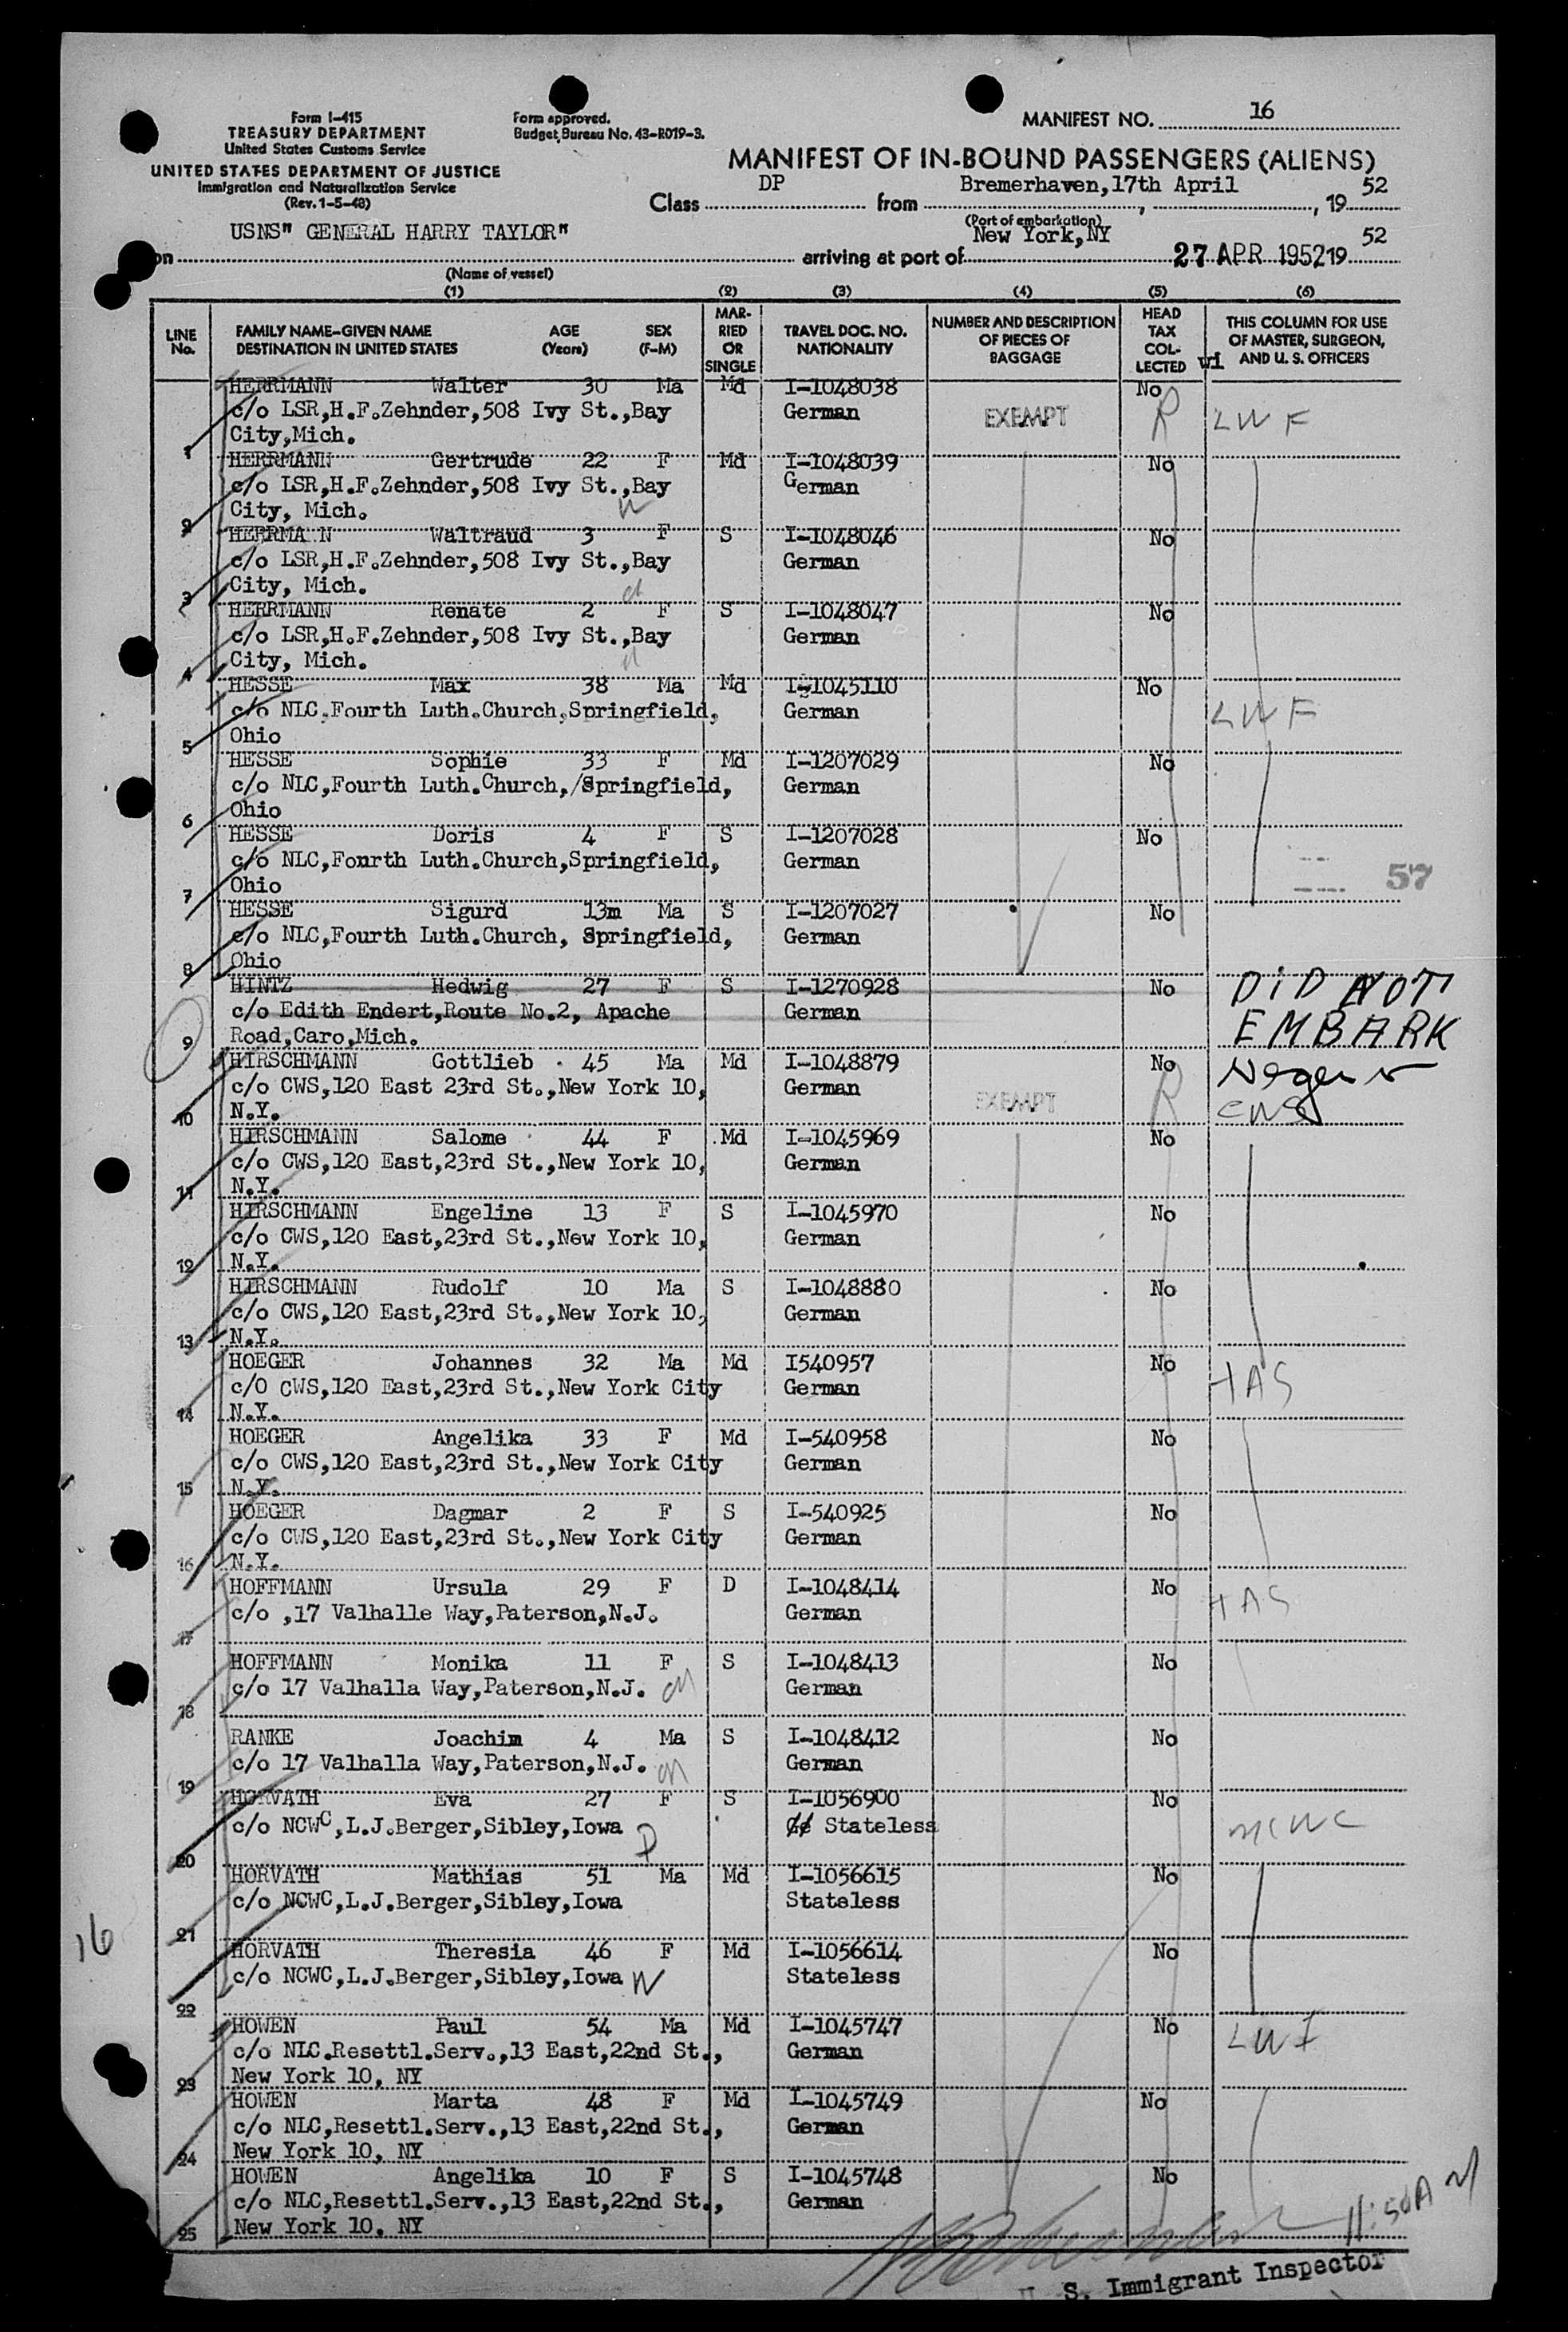 Form I-415
TREASURY DEPARTMENT
United States Customs Service
UNITED STATES DEPARTMENT OF JUSTICE
Immigration and Naturalization Service
(Rev. 1-5-48)
Form approved.
Budget Bureau No. 43-R019-3.
MANIFEST NO. 16
MANIFEST OF IN-BOUND PASSENGERS (ALIENS)
Class DP from Bremerhaven,17th April, 19 52
(Port of embarkation)
on USNS" GENERAL HARRY TAYLOR" arriving at port of New York,NY 27 APR 1952 19 52
(Name of vessel)
(1) (2) (3) (4) (5) (6)
LINE No. FAMILY NAME—GIVEN NAME DESTINATION IN UNITED STATES AGE (Years) SEX (F-M) MARRIED OR SINGLE TRAVEL DOC. NO. NATIONALITY NUMBER AND DESCRIPTION OF PIECES OF BAGGAGE HEAD TAX COLLECTED THIS COLUMN FOR USE OF MASTER, SURGEON, AND U. S. OFFICERS
vi
HERRMANN Walter 30 Ma Md I-1048038 No
c/o LSR,H.F.Zehnder,508 Ivy St.,Bay German EXEMPT R LWF
1 City,Mich.
HERRMANN Gertrude 22 F Md I-1048039 No
c/o LSR,H.F.Zehnder,508 Ivy St.,Bay German
2 City, Mich.
HERRMA N Waltraud 3 F S I-1048046 No
c/o LSR,H.F.Zehnder,508 Ivy St.,Bay German
3 City, Mich.
HERRMANN Renate 2 F S I-1048047 No
c/o LSR,H.F.Zehnder,508 Ivy St.,Bay German
4 City, Mich.
HESSE Max 38 Ma Md I-1045110 No
c/o NLC.Fourth Luth.Church,Springfield, German LWF
5 Ohio
HESSE Sophie 33 F Md I-1207029 No
c/o NLC,Fourth Luth.Church,/Springfield, German
6 Ohio
HESSE Doris 4 F S I-1207028 No
c/o NLC,Fonrth Luth.Church,Springfield, German
57
7 Ohio
HESSE Sigurd 13m Ma S I-1207027 No
c/o NLC,Fourth Luth.Church, Springfield, German
8 Ohio
HINTZ Hedwig 27 F S I-1270928 No DID NOT
c/o Edith Endert,Route No.2, Apache German EMBARK
9 Road,Caro,Mich.
HIRSCHMANN Gottlieb 45 Ma Md I-1048879 No
c/o CWS,120 East 23rd St.,New York 10, German EXEMPT R CWS
10 N.Y.
HIRSCHMANN Salome 44 F Md I-1045969 No
c/o CWS,120 East,23rd St.,New York 10, German
11 N.Y.
HIRSCHMANN Engeline 13 F S I-1045970 No
c/o CWS,120 East,23rd St.,New York 10, German
12 N.Y.
HIRSCHMANN Rudolf 10 Ma S I-1048880 No
c/o CWS,120 East,23rd St.,New York 10, German
13 N.Y.
HOEGER Johannes 32 Ma Md I540957 No
c/O CWS,120 East,23rd St.,New York City German HAS
14 N.Y.
HOEGER Angelika 33 F Md I-540958 No
c/o CWS,120 East,23rd St.,New York City German
15 N.Y.
HOEGER Dagmar 2 F S I-540925 No
c/o CWS,120 East,23rd St.,New York City German
16 N.Y.
HOFFMANN Ursula 29 F D I-1048414 No
c/o ,17 Valhalle Way,Paterson,N.J. German HAS
17
HOFFMANN Monika 11 F S I-1048413 No
c/o 17 Valhalla Way,Paterson,N.J. German
18
RANKE Joachim 4 Ma S I-1048412 No
c/o 17 Valhalla Way,Paterson,N.J. German
19
HORVATH Eva 27 F S I-1056900 No
c/o NCWC,L.J.Berger,Sibley,Iowa Stateless NCWC
20
HORVATH Mathias 51 Ma Md I-1056615 No
c/o NCWC,L.J.Berger,Sibley,Iowa Stateless
21
16
HORVATH Theresia 46 F Md I-1056614 No
c/o NCWC,L.J.Berger,Sibley,Iowa Stateless
22
HOWEN Paul 54 Ma Md I-1045747 No
c/o NLC.Resettl.Serv.,13 East,22nd St., German LWF
23 New York 10, NY
HOWEN Marta 48 F Md I-1045749 No
c/o NLC,Resettl.Serv.,13 East,22nd St., German
24 New York 10, NY
HOWEN Angelika 10 F S I-1045748 No
c/o NLC,Resettl.Serv.,13 East,22nd St., German
25 New York 10, NY
11:50A M
U. S. Immigrant Inspector